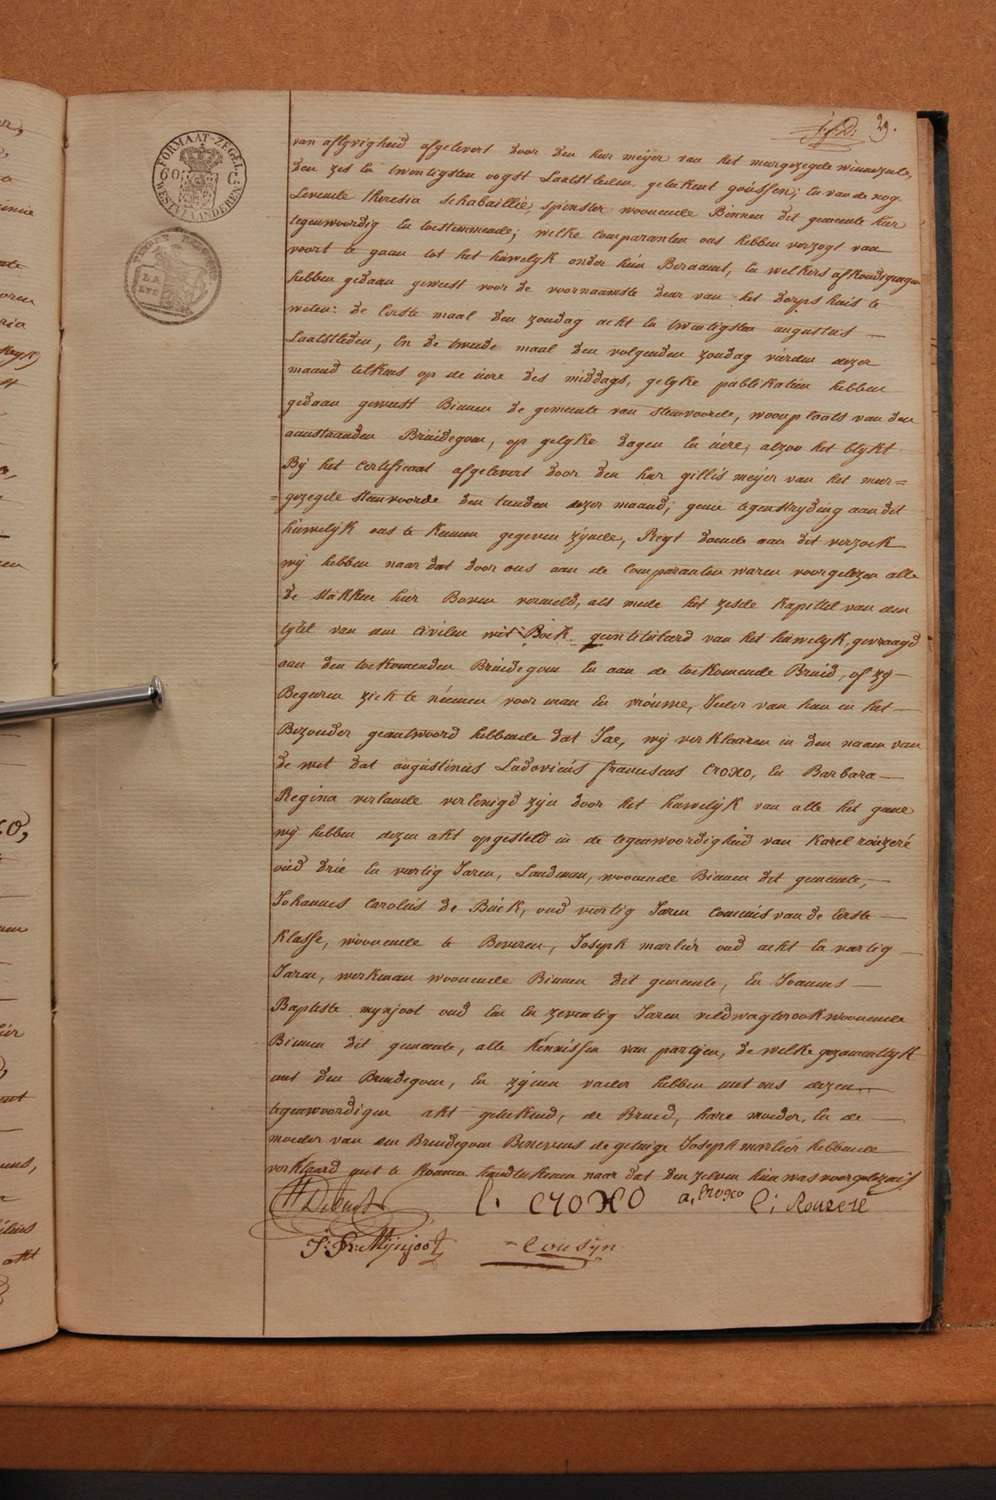 29.
FORMAAT-ZEGEL
WESTVLAANDEREN
van aflyvigheid afgelevert door den heer meijer van het meergezegde winnezeele,
den zes en twentigsten oogst Laatstleden geteekent goossen; en van de nog
Levende theresia schabaillie, spinster woonende Binnen dit gemeente hier
tegenwoordig en toestemmende; welke comparanten ons hebben verzogt van
voort te gaen tot het huwelijk onder hun Beraamt, en welkers afkondigingen
hebben gedaan geweest voor de voornaamste deur van het dorps huis te
weten: de Eerste maal den zondag acht en twentigsten augustus
Laatstleden, en de tweede maal den volgenden zondag vierden dezer
maand telkens op de uere des middags, gelyke publikatien hebben
gedaan geweest Binnen de gemeente van steenvoorde, woonplaats van den
aanstaanden Bruidegom, op gelyke dagen en uere, alzoo het blykt
Bij het Certificaat afgelevert door den heer gillis meijer van het meer=
=gezegde steenvoorde den tienden dezer maand; geene tegenstryding aan dit
huwelijk ons te kennen gegeven zijnde, Regt doende aan dit verzoek
wij hebben naar dat door ons aan de Comparanten waren voorgelezen alle
de stukken hier Boven vermeld, als mede het zesde kapittel van den
tytel van den civilen wet Boek geintituleerd van het huwelyk, gevraagd
aan den toekomenden Bruidegom en aan de toekomende Bruid, of zy
Begeeren zich te neemen voor man en vrouwe, Ieder van hun in het
Bezonder geantwoord hebbende dat Jae, wij verklaaren in den naam van
de wet dat augustinus Ludovicus franciscus Croxo, en Barbara
Regina verlende vereenigd zijn door het huwelijk van alle het geene
wij hebben dezen akt opgesteld in de tegenwoordigheid van Karel rouzeré
oud drie en veertig Jaren, Landman, woonende Binnen dit gemeente,
Johannes Carolus de Buck, oud veertig Jaren Commis van de Eerste
klasse, woonende te Beveren, Joseph marlier oud acht en veertig
Jaren, werkman woonende Binnen dit gemeente, en Joannes
Baptiste mynjoot oud een en zeventig Jaren veldwagter ook woonende
Binnen dit gemeente, alle kennissen van partijen, de welke gezamentlijk
met den Bruidegom, en zijnen vader hebben met ons dezen
tegenwoordigen akt geteekend, de Bruid, hare moeder, en de
moeder van den Bruidegom Benevens de getuige Joseph marlier hebbende
verklaard niet te konnen handteekenen naar dat den zelven hun was voorgelezen
L. CROXO a, Croxo C; Rouzeré
J: Bt: Mijnjoot Cousyn